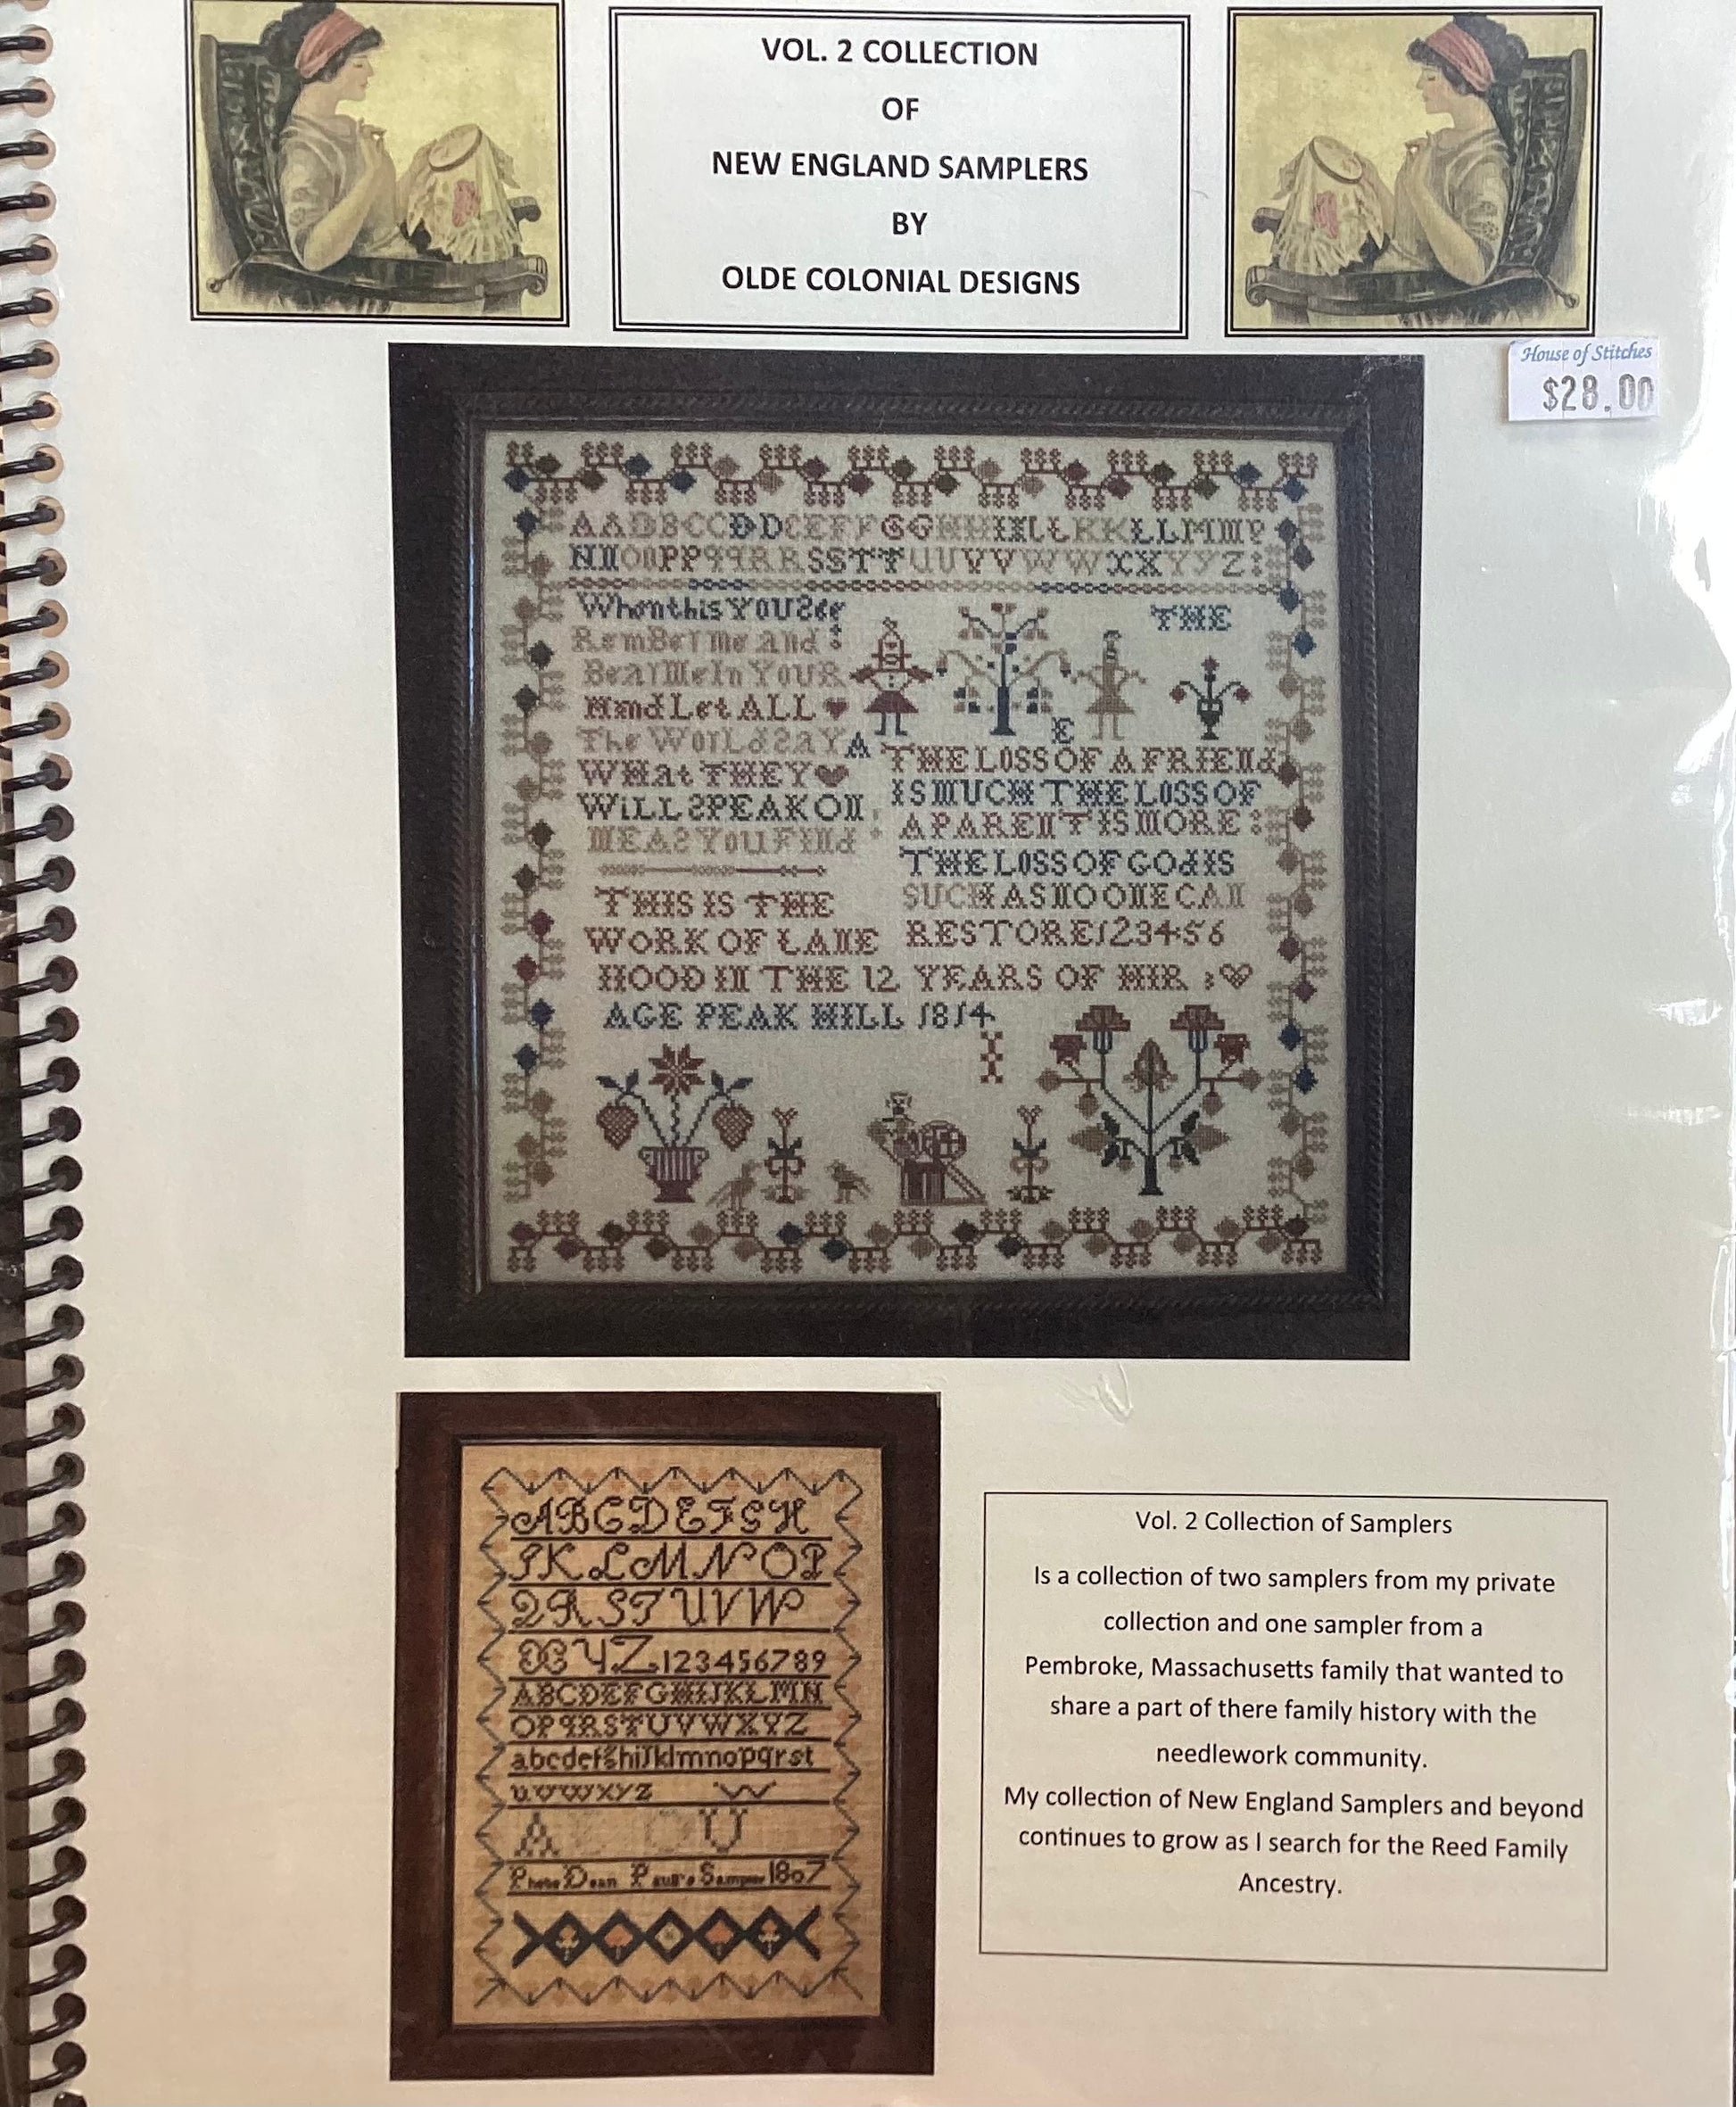 VOL. 2 COLLECTION
OF
NEW ENGLAND SAMPLERS
BY
OLDE COLONIAL DESIGNS
House of Stitches
$28.00
AABBCCDDEEFFGGHHIILLKKLLMM
NNOOPPqqRRSSTTUUVVWWXXYYZ:
When this YOU See
RemBer me and :
Bear Me In YOUR
Mind Let ALL
The WorLd SaY A
WHat THEY
WiLL SPEAK ON
ME AS YOU FINd
THE
E
THE LOSS OF A FRIENd
IS MUCH THE LOSS OF
A PARENT IS MORE :
THE LOSS OF GOd IS
SUCH AS NO ONE CAN
RESTORE 123456
THIS IS THE
WORK OF LANE
HOOD IN THE 12 YEARS OF HIR :
AGE PEAK HILL 1814
ABCDEFGH
IKLMNOP
QRSTUVW
XYZ. 123456789
ABCDEFGHIJKLMN
OPqRSTUVWXYZ
abcdefghijklmnopqrst
uvwxyz W
A U
Phebe Dean Paull's Sampler 1807
Vol. 2 Collection of Samplers
Is a collection of two samplers from my private
collection and one sampler from a
Pembroke, Massachusetts family that wanted to
share a part of there family history with the
needlework community.
My collection of New England Samplers and beyond
continues to grow as I search for the Reed Family
Ancestry.